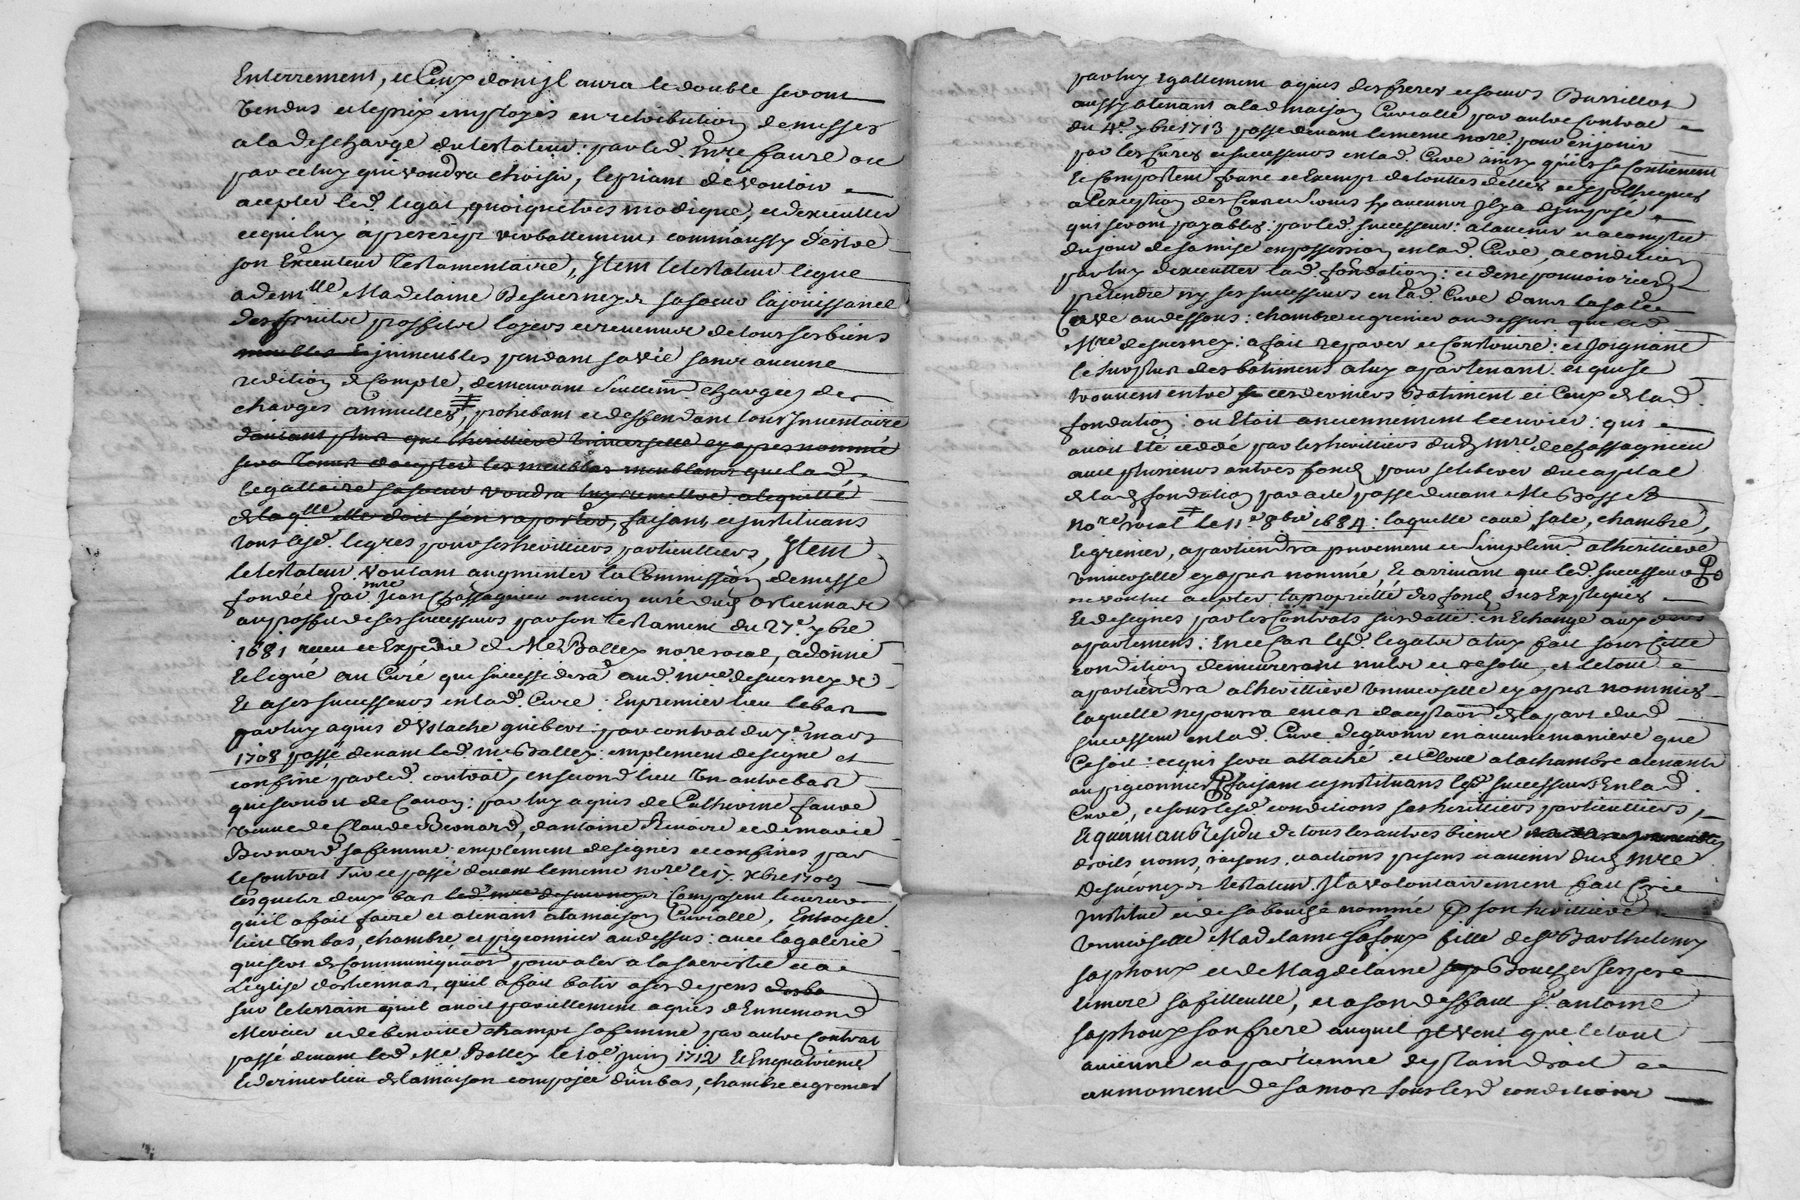 Enterrement, et Ceux dont jl aura le double seront
vendus et le prix employés en retribution de messes
a la descharge du testateur: par led. mre faure ou
par celuy qui voudra choisir, le priant de vouloir
acepter led. legat, quoique tres modique, et d'executter
ce qui luy a prescript verballement, comm'aussy d'estre
son Executeur Testamentaire, Jtem le testateur legue
a demlle Madelaine Desuerneys sa soeur la jouissance
des fruits proffits loyers et revenus de tous ses biens
meubles & jmmeubles pendant sa vie sans aucune
redition de Compte, demeurant seullemt. chargée des
charges annuelles, prohibant et deffendant tout Jnventaire
d'autant plus que l'heritiere vniverselle cy apres nommée
sera tenue d'acepter les meubles meublans que lad.
legattaire sa soeur voudra luy remettre a lequitté
de laqlle elle doit s'en raporter, faisant et jnstituans
tous lesd. legués pour ses heritiers particulliers, Jtem
le testateur voulant augmenter la Commission de messe
fondée par mre Jean Chassagnieu ancien curé dud. Ortiennas
au proffit de ses successeurs par son Testament du 27e 7bre
1681 receu et Expedié de Me Balley nore royal, a donné
et legué au Curé qui succedera aud. mre desuerneys
Et a ses successeurs en lad. Cure: En premier lieu le bas
par luy aquis d'Ustache guibert: par contrat du 7e mars
1708 passé devant led. me Balley: emplement designé et
confiné par led. contrat, en second lieu un autre bas
qui servoit de Cavon: par luy aquis de Catherine faure
veuve de Claude Bernard, d'antoine Renoire et de marie
Bernard sa femme: emplement designés et confinés par
le Contrat sur ce passé devant le meme nore le 17 Xbre 1709
lesquels deux bas led. mre desuerneys Composent l'ecurie
qu'il a fait faire et atenant a la maison Curialle, En troisie.
lieu un bas, chambre et pigeonnier au dessus: avec la galerie
qui sert de Communiquaon pour aler a la sacristie et a
l'eglise d'ortiennas, qu'il a fait batir a ses depens des ba
sur le terrain qu'il avoit pareillement aquis d'Ennemond
Mercier et de benoitte champt sa femme par autre Contrat
passé devant led. Me Balley le 10e juin 1712 Et En quatrieme
Et dernier lieu de la maison composée d'un bas, chambre et grenier
par luy Egallement aquis des freres et soeurs Burrillot
aussy atenant a lad. maison Curialle par autre Contrat
du 4e 7bre 1713 passé devant le meme nore: pour en jouir
par les Curés et successeurs en lad. Cure ainsy qu'ils se Contiennent
Et Comportent franc et Exempt de touttes dettes et ypotheques
a l'exception des Cens et servis sy aucuns jl y a d'jmposé
qui seront payables: par led. successeur: a l'avenir et a compter
du jour de sa mise en possession en lad. Cure, a condition
par luy d'executter lad. fondation: et de ne pouvoir rien
pretendre ny ses successeurs en lad. Cure dans la sale
Cave au dessous: chambre et grenier au dessus que led.
Mre desuerneys: a fait reparer et Construire: et joignant
le surplus des batiments a luy apartenant et qui se
trouvent entre se ces derniers Batiment et Ceux de lad.
fondation: ou Etoit anciennement l'ecurie: qui
avoit Eté cedé par les heritiers dud. mre de Chassagnieu
avec plusieurs autres fonds pour se liberer du capital
de lad. fondation par acte passé devant Me Bosse
nore royal le 11e 8bre 1684: laquelle cave, sale, chambre,
Et grenier, apartiendra purement et simplemt. a l'heritiere
vniverselle cy apres nommée, Et arrivant que led. successeur
ne voulut acepter la proprietté des fonds sus Expliqués
Et designés par les Contrats sus datté: en Echange aux
apartement: En ce Cas lesd. legats a luy fait sous cette
condition demeureront nuls et resolu, et le tout
apartiendra a l'heritiere vniverselle cy apres nommée
laquelle ne pourra en cas d'aceptaon de la part dud.
successeur en lad. Cure degarnir en aucune maniere que
Ce soit: ce qui sera attaché et Cloué a la chambre atenante
au pigeonnier faisant et jnstituans lesd. successeurs En lad.
Cure, et sous lesd. conditions ses heritiers particulliers,
Et quant au residu de tous les autres biens
droits noms, raisons, et actions presens et avenir dud. mre
Desuerneys testateur Jl a volontairement fait Crée
jnstitué et de sa bouche nommé pr son heritiere
vniverselle Madelaine Safoux fille de sr Barthelemy
saphoux et de Magdelaine Boucher ses pere
et mere sa filleulle, et a son deffaut sr. antoine
saphoux son frere auquel jl veut que le tout
avienne et apartienne de plain droit
au moment de sa mort sous lesd. conditions